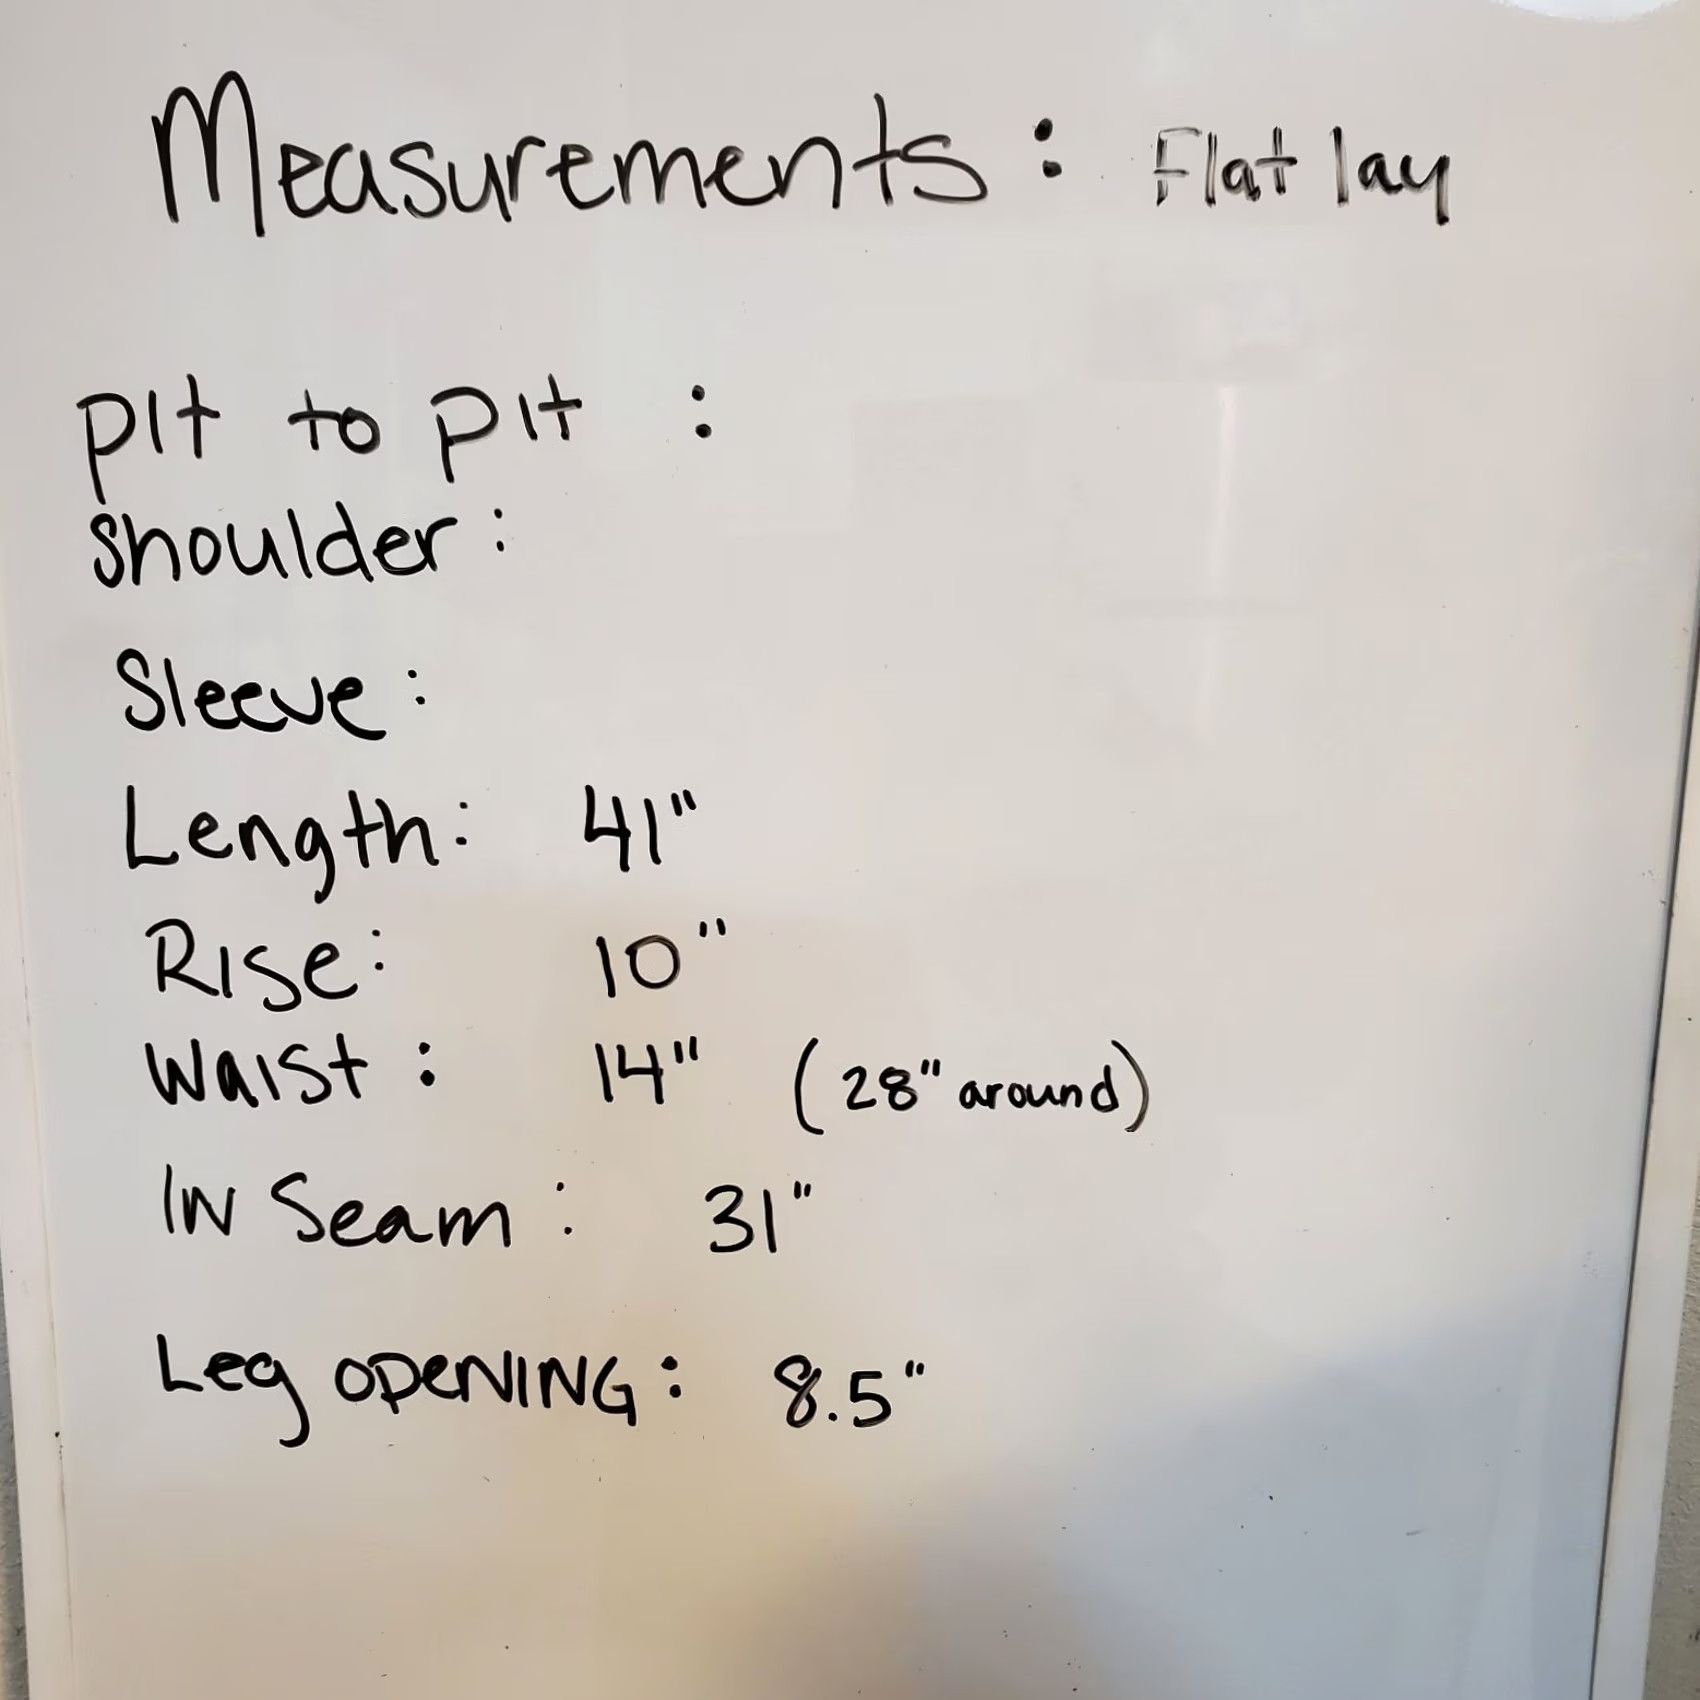 Measurements: Flat lay
pit to pit:
shoulder:
Sleeve:
Length: 41"
Rise: 10"
Waist: 14" (28" around)
IN Seam: 31"
Leg OPENING: 8.5"